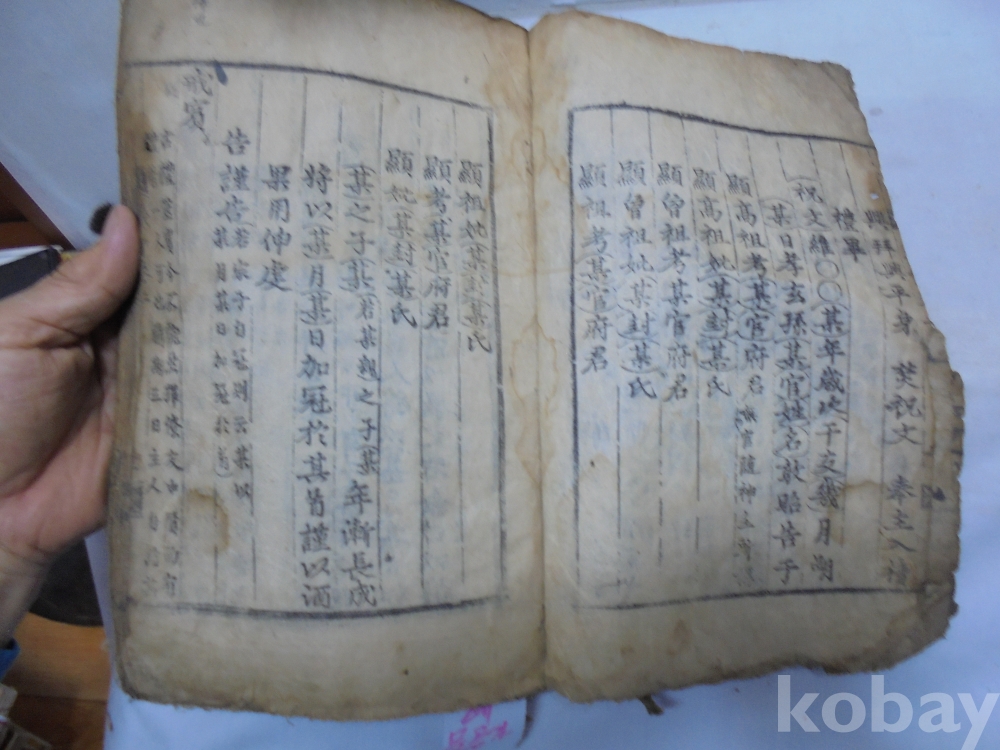 興拜興平身 焚祝文 奉主入櫝
禮畢
祝文維○○某年歲次干支幾月朔
某日孝玄孫某官姓名敢昭告于
顯高祖考某官府君
顯高祖妣某封某氏
顯曾祖考某官府君
顯曾祖妣某封某氏
顯祖考某官府君
顯祖妣某封某氏
顯考某官府君
顯妣某封某氏
某之子某若某親之子某年漸長成
特以某月某日加冠於其首謹以酒
果用伸虔
告謹告若宗子自冠則云某以
某月某日加冠於首
戒賓
古禮筮賓今不能然
三日主人自
kobay